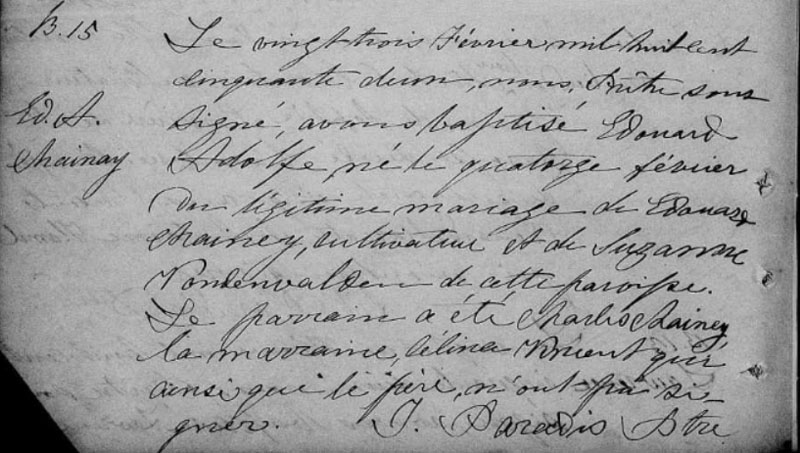 B.15
Le vingt trois Février mil huit cent
cinquante deux, nous, Prêtre sous
Ed. A.
Chainay
signé, avons baptisé Edouard
Adolfe né le quatorze février
du légitime mariage de Edouard
Chainey, cultivateur et de Suzanne
Vondenvalden de cette paroisse.
Le parrain a été Charles Chainey
la marraine, Célina Vincent qui
ainsi que le père, n'ont pu si-
gner. J. Paradis Ptre